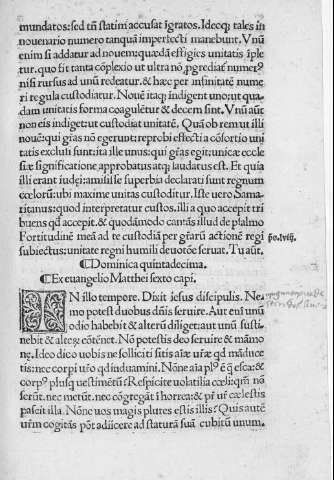 mundatos: sed tñ statim accusat īgratos. Ideoq; tales in
nouenario numero tanquā imperfecti manebunt. Vnū
enim si addatur ad nouem: quædā effigies unitatis īple
tur. quo fit tanta cōplexio ut ultra nō ꝓgrediaŧ numer9
nisi rursus ad unū redeatur. & hæc per infinitatē nume
ri regula custodiatur. Nouē itaq; indigent uno; ut qua
dam unitatis forma coagulētur & decem sint. Vnū aūt
non eis indiget: ut custodiat unitatē. Quā ob rem ut illi
nouē: qui grās nō egerunt: reprobi effecti a cōsortio uni
tatis exclusi sunt: ita ille unus: qui grās egit: unicæ eccle
siæ significatione approbatus atq; laudatus est. Et quia
illi erant iudei: amisisse superbia declarati sunt regnum
cœlorū: ubi maxime unitas custoditur. Iste uero Sama
ritanus: quod interpretatur custos. illi a quo accepit tri
buens qd accepit. & quodāmodo cantās illud de psalmo
Fortitudinē meā ad te custodiā per grārū actionē regi
subiectus: unitate regni humili deuotōe seruat. Tu aūt.
ps. lviij.
¶Dominica quintadecima.
¶Ex euangelio Matthei sexto capi.
IN illo tempore. Dixit iesus discipulis. Ne
mo potest duobus dñis seruire. Aut eni unū
odio habebit & alterū diliget: aut unū susti
nebit & alteȝ cōtēnet. Nō potestis deo seruire & māmo
næ. Ideo dico uobis ne solliciti sitis aīæ uræ qd māduce
tis: nec corpi uro qd induamini. Nōne aīa pl9 ē q̄ esca: &
corp9 plusq̄ uestimētū: Respicite uolatilia cœli: qm̄ nō
serūt. nec metūt. nec cōgregāt ī horrea: & pr̄ ur̄ cœlestis
pascit illa. Nōne uos magis plures estis illis: Quis autē
urm̄ cogitās pōt adiicere ad staturā suā cubitū unum.